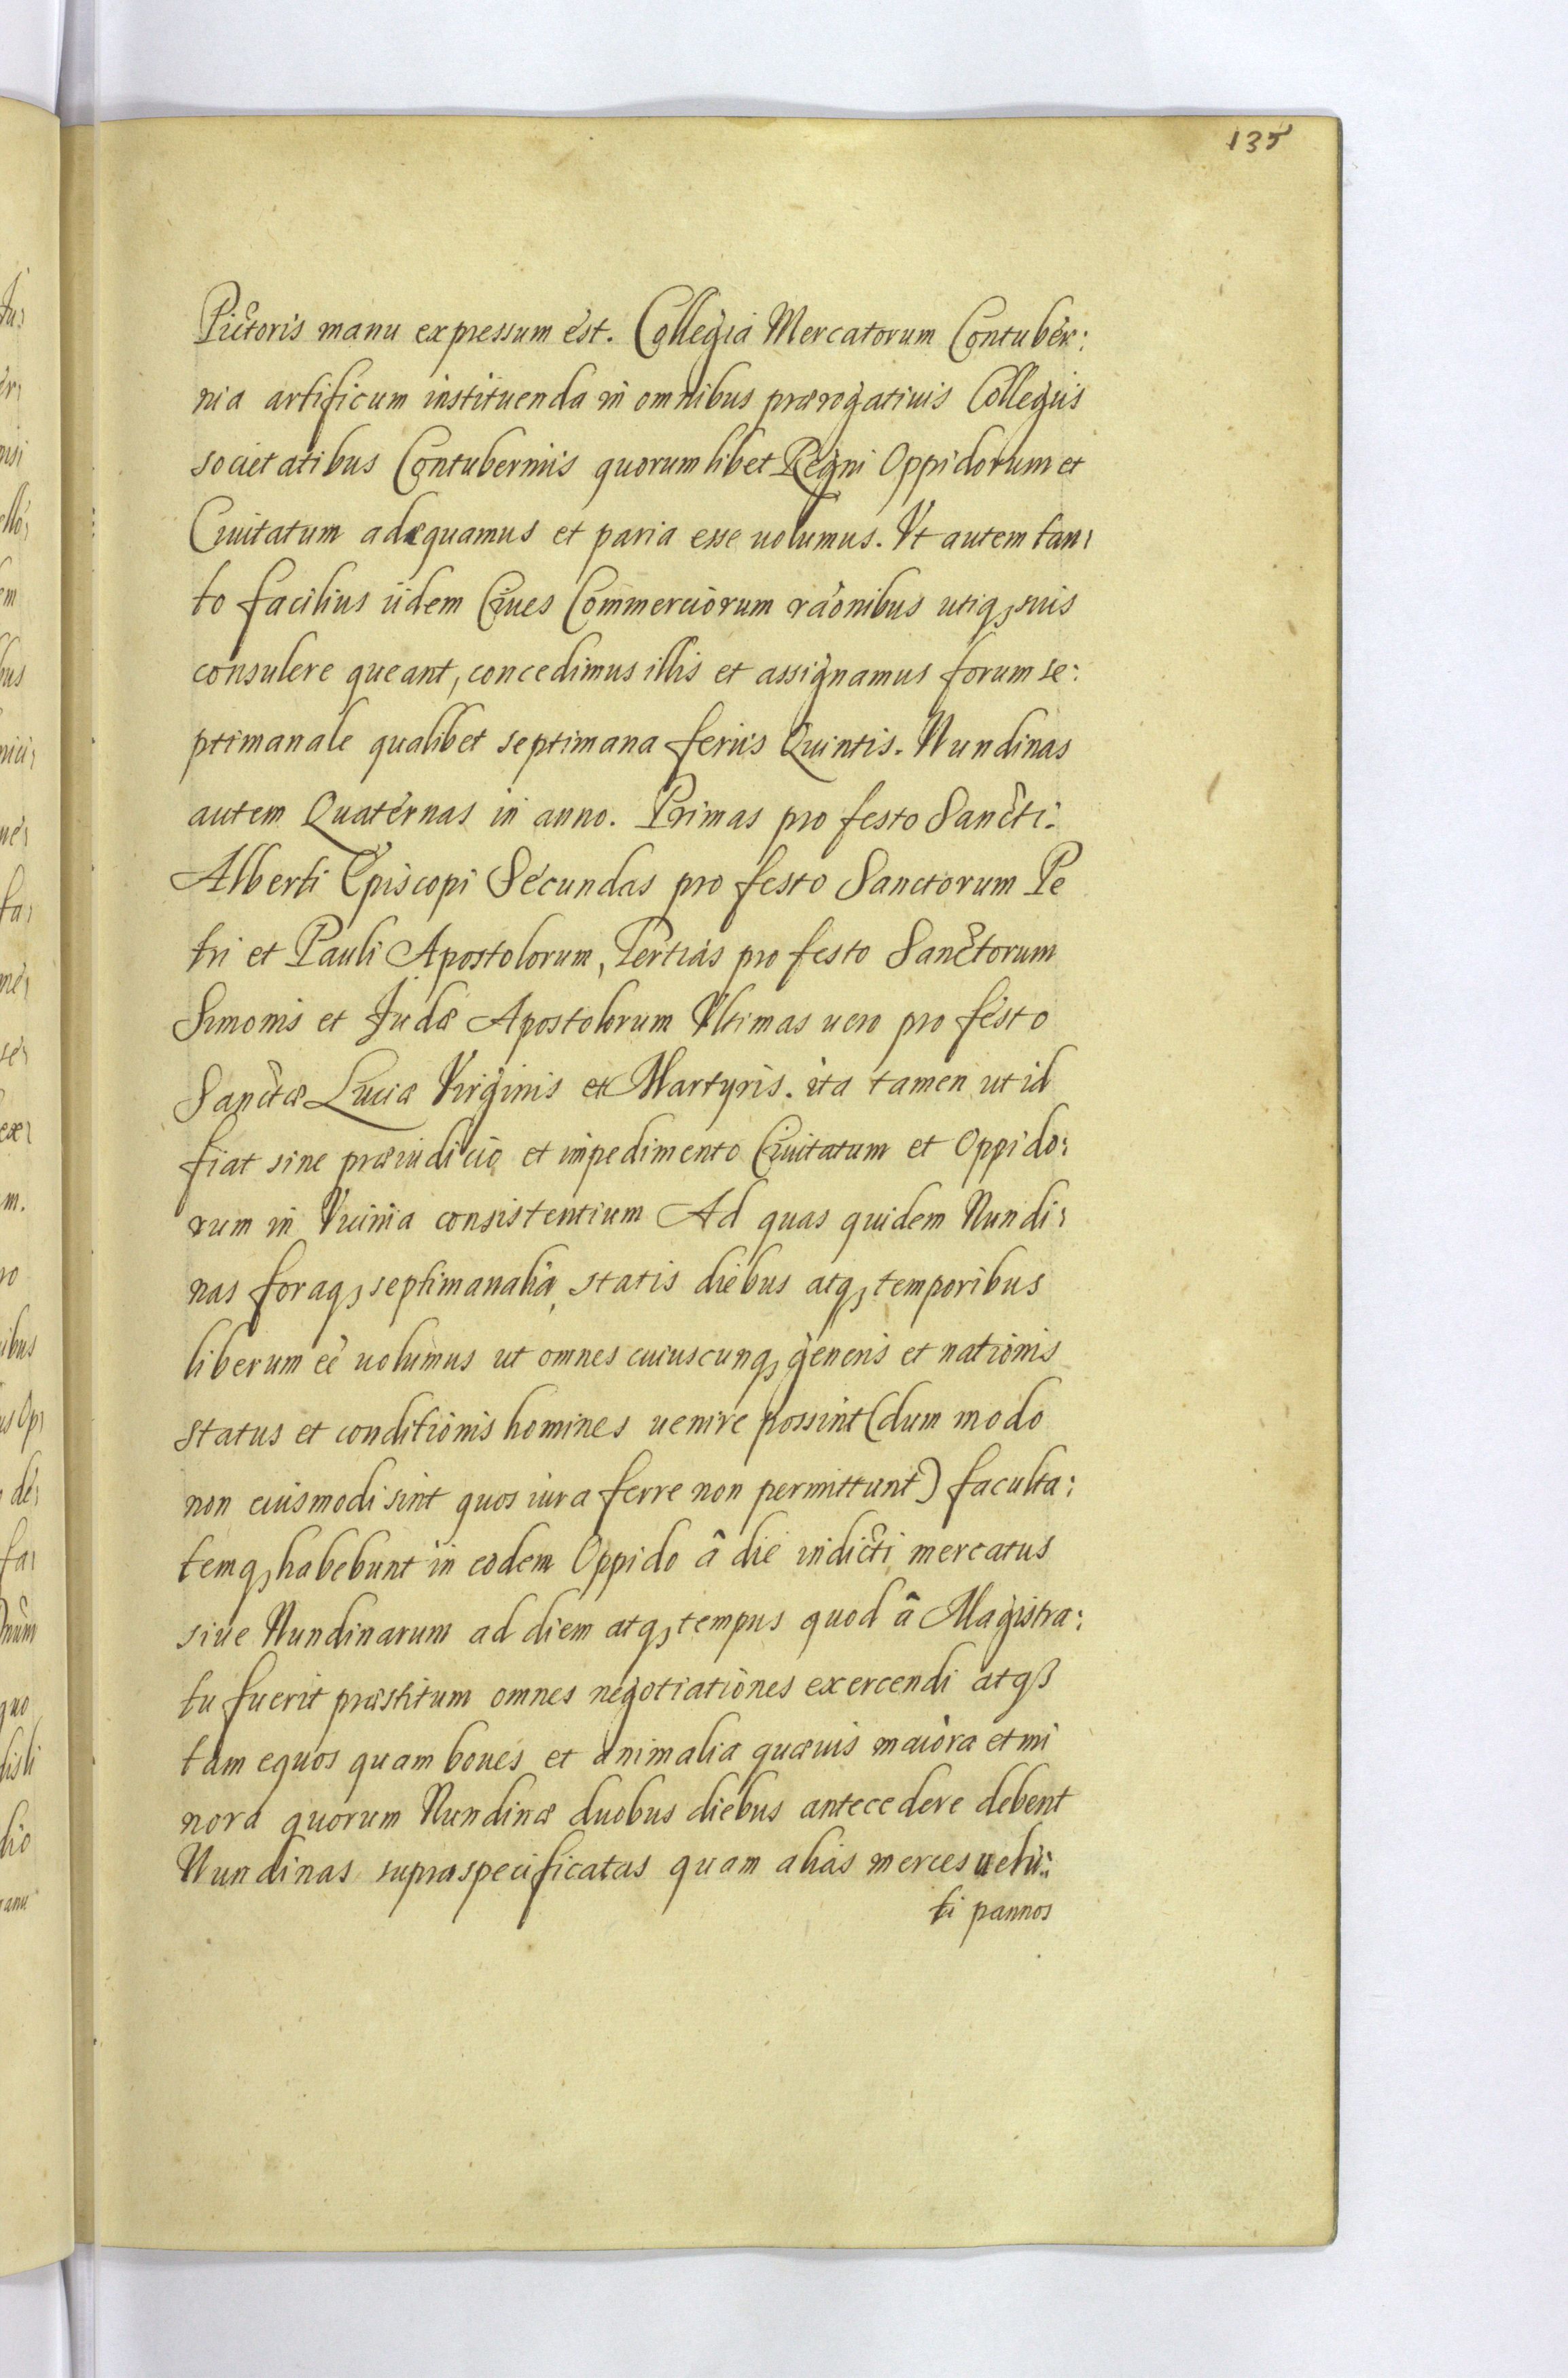 135
Pictoris manu expressum est. Collegia Mercatorum Contuber:
nia artificum instituenda in omnibus prærogatiuis Collegijs
societatibus Contubernijs quorumlibet Regni Oppidorum et
Ciuitatum adæquamus et paria esse uolumus. Vt autem tan:
to facilius ijdem Ciues Commerciorum rãonibus utiq3 suis
consulere queant, concedimus illis et assignamus forum se:
ptimanale qualibet septimana ferijs Quintis. Nundinas
autem Quaternas in anno. Primas pro festo Sancti:
Alberti Episcopi Secundas pro festo Sanctorum Pe
tri et Pauli Apostolorum, Tertias pro festo Sanctorum
Simonis et Judæ Apostolorum Vltimas uero pro festo
Sanctæ Luciæ Virginis et Martyris. ita tamen ut id
fiat sine præiudicio et impedimento Ciuitatum et Oppido:
rum in Vicinia consistentium Ad quas quidem Nundi:
nas foraq3 septimanalia, statis diebus atq3 temporibus
liberum eẽ uolumus ut omnes cuiuscunq3 generis et nationis
status et conditionis homines uenire possint (dum modo
non eiusmodi sint quos iura ferre non permittunt) faculta:
temq3 habebunt in eodem Oppido â die indicti mercatus
siue Nundinarum ad diem atq3 tempus quod â Magistra:
tu fuerit præstitum omnes negotiationes exercendi atq3
tam equos quam boues et animalia quæuis maiora et mi
nora quorum Nundinæ duobus diebus antecedere debent
Nundinas supraspecificatas quam alias merces uelu:
ti pannos